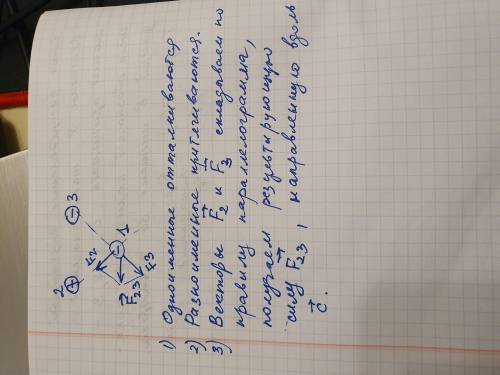 2 + - 3
F2 - 1
F23 F3
1) Одноименные отталкиваются
2) Разноименные притягиваются.
3) Векторы F2 и F3 складываем по
правилу параллелограмма,
получаем результирующую
силу F23, направленную вдоль
c.